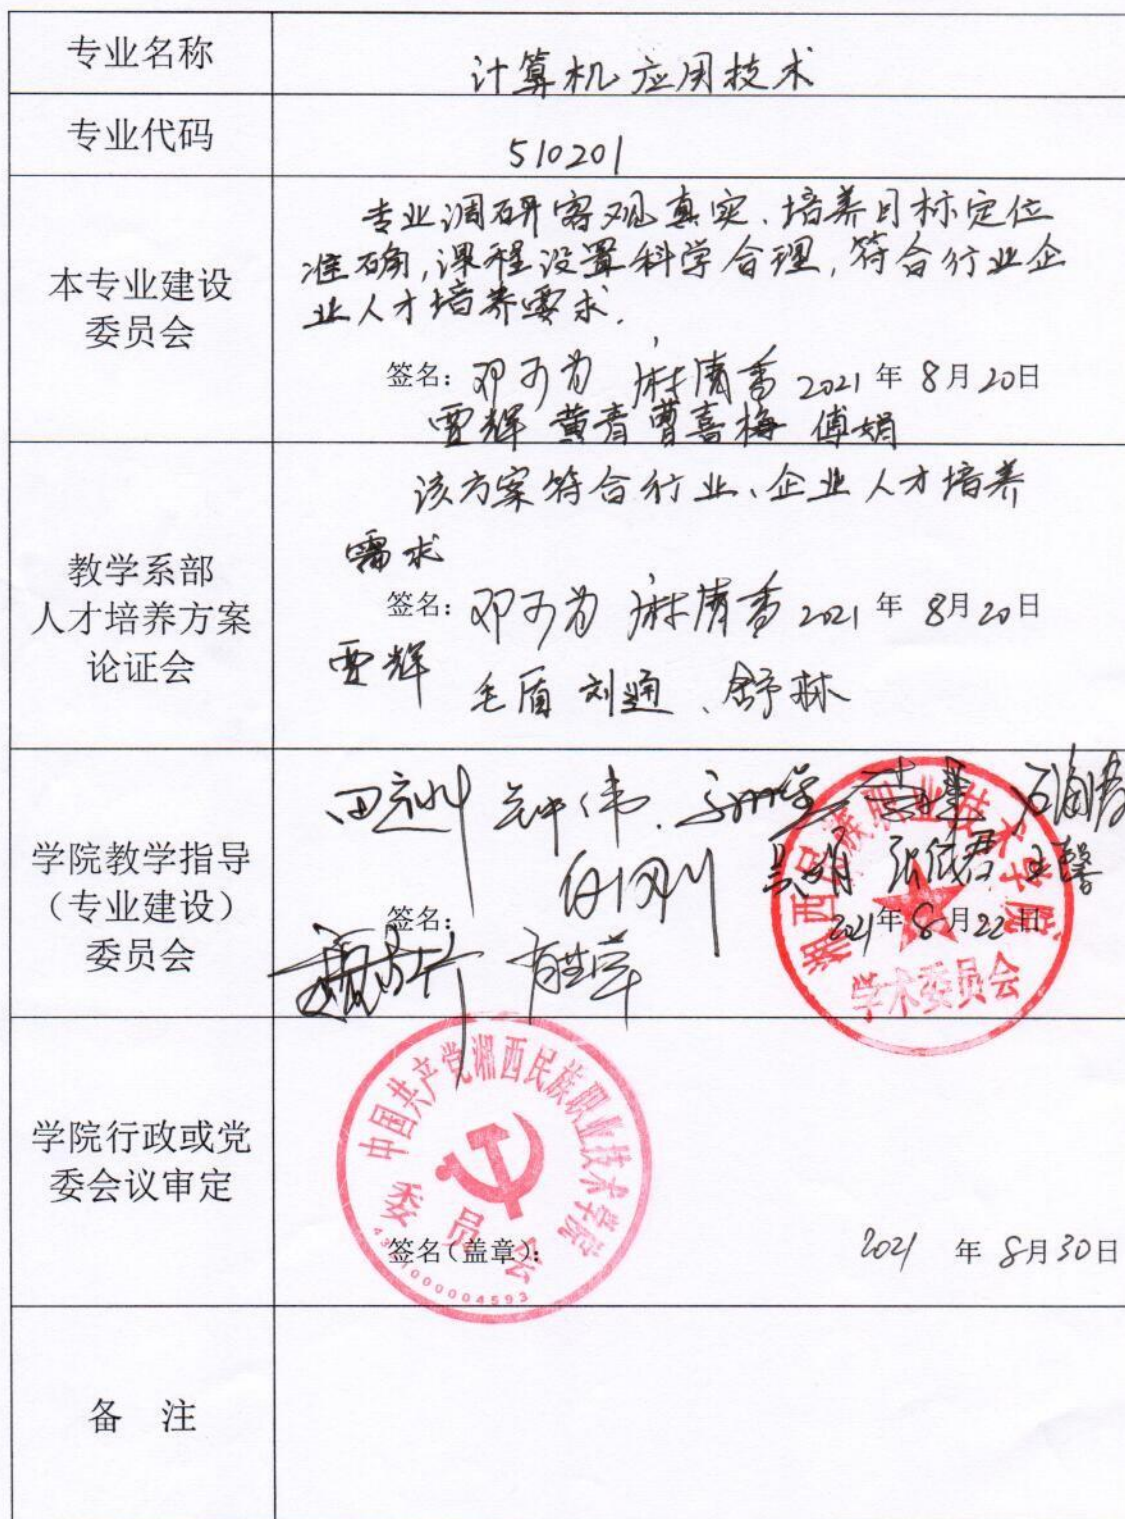 专业名称
计算机应用技术
专业代码
510201
本专业建设
委员会
专业调研客观真实、培养目标定位
准确,课程设置科学合理,符合行业企
业人才培养要求.
签名: 邓可为 麻清香 2021 年 8月20日
贾辉 黄青 曹喜梅 傅娟
教学系部
人才培养方案
论证会
该方案符合行业、企业人才培养
需求
签名: 邓可为 麻清香 2021 年 8月20日
贾辉
毛盾 刘通、舒林
学院教学指导
（专业建设）
委员会
钟伟
吴娟 王馨
签名:
2021年8月22日
湘西民族职业技术学院
学术委员会
学院行政或党
委会议审定
中国共产党湘西民族职业技术学院
委员会
签名(盖章):
2021 年 8月30日
备 注